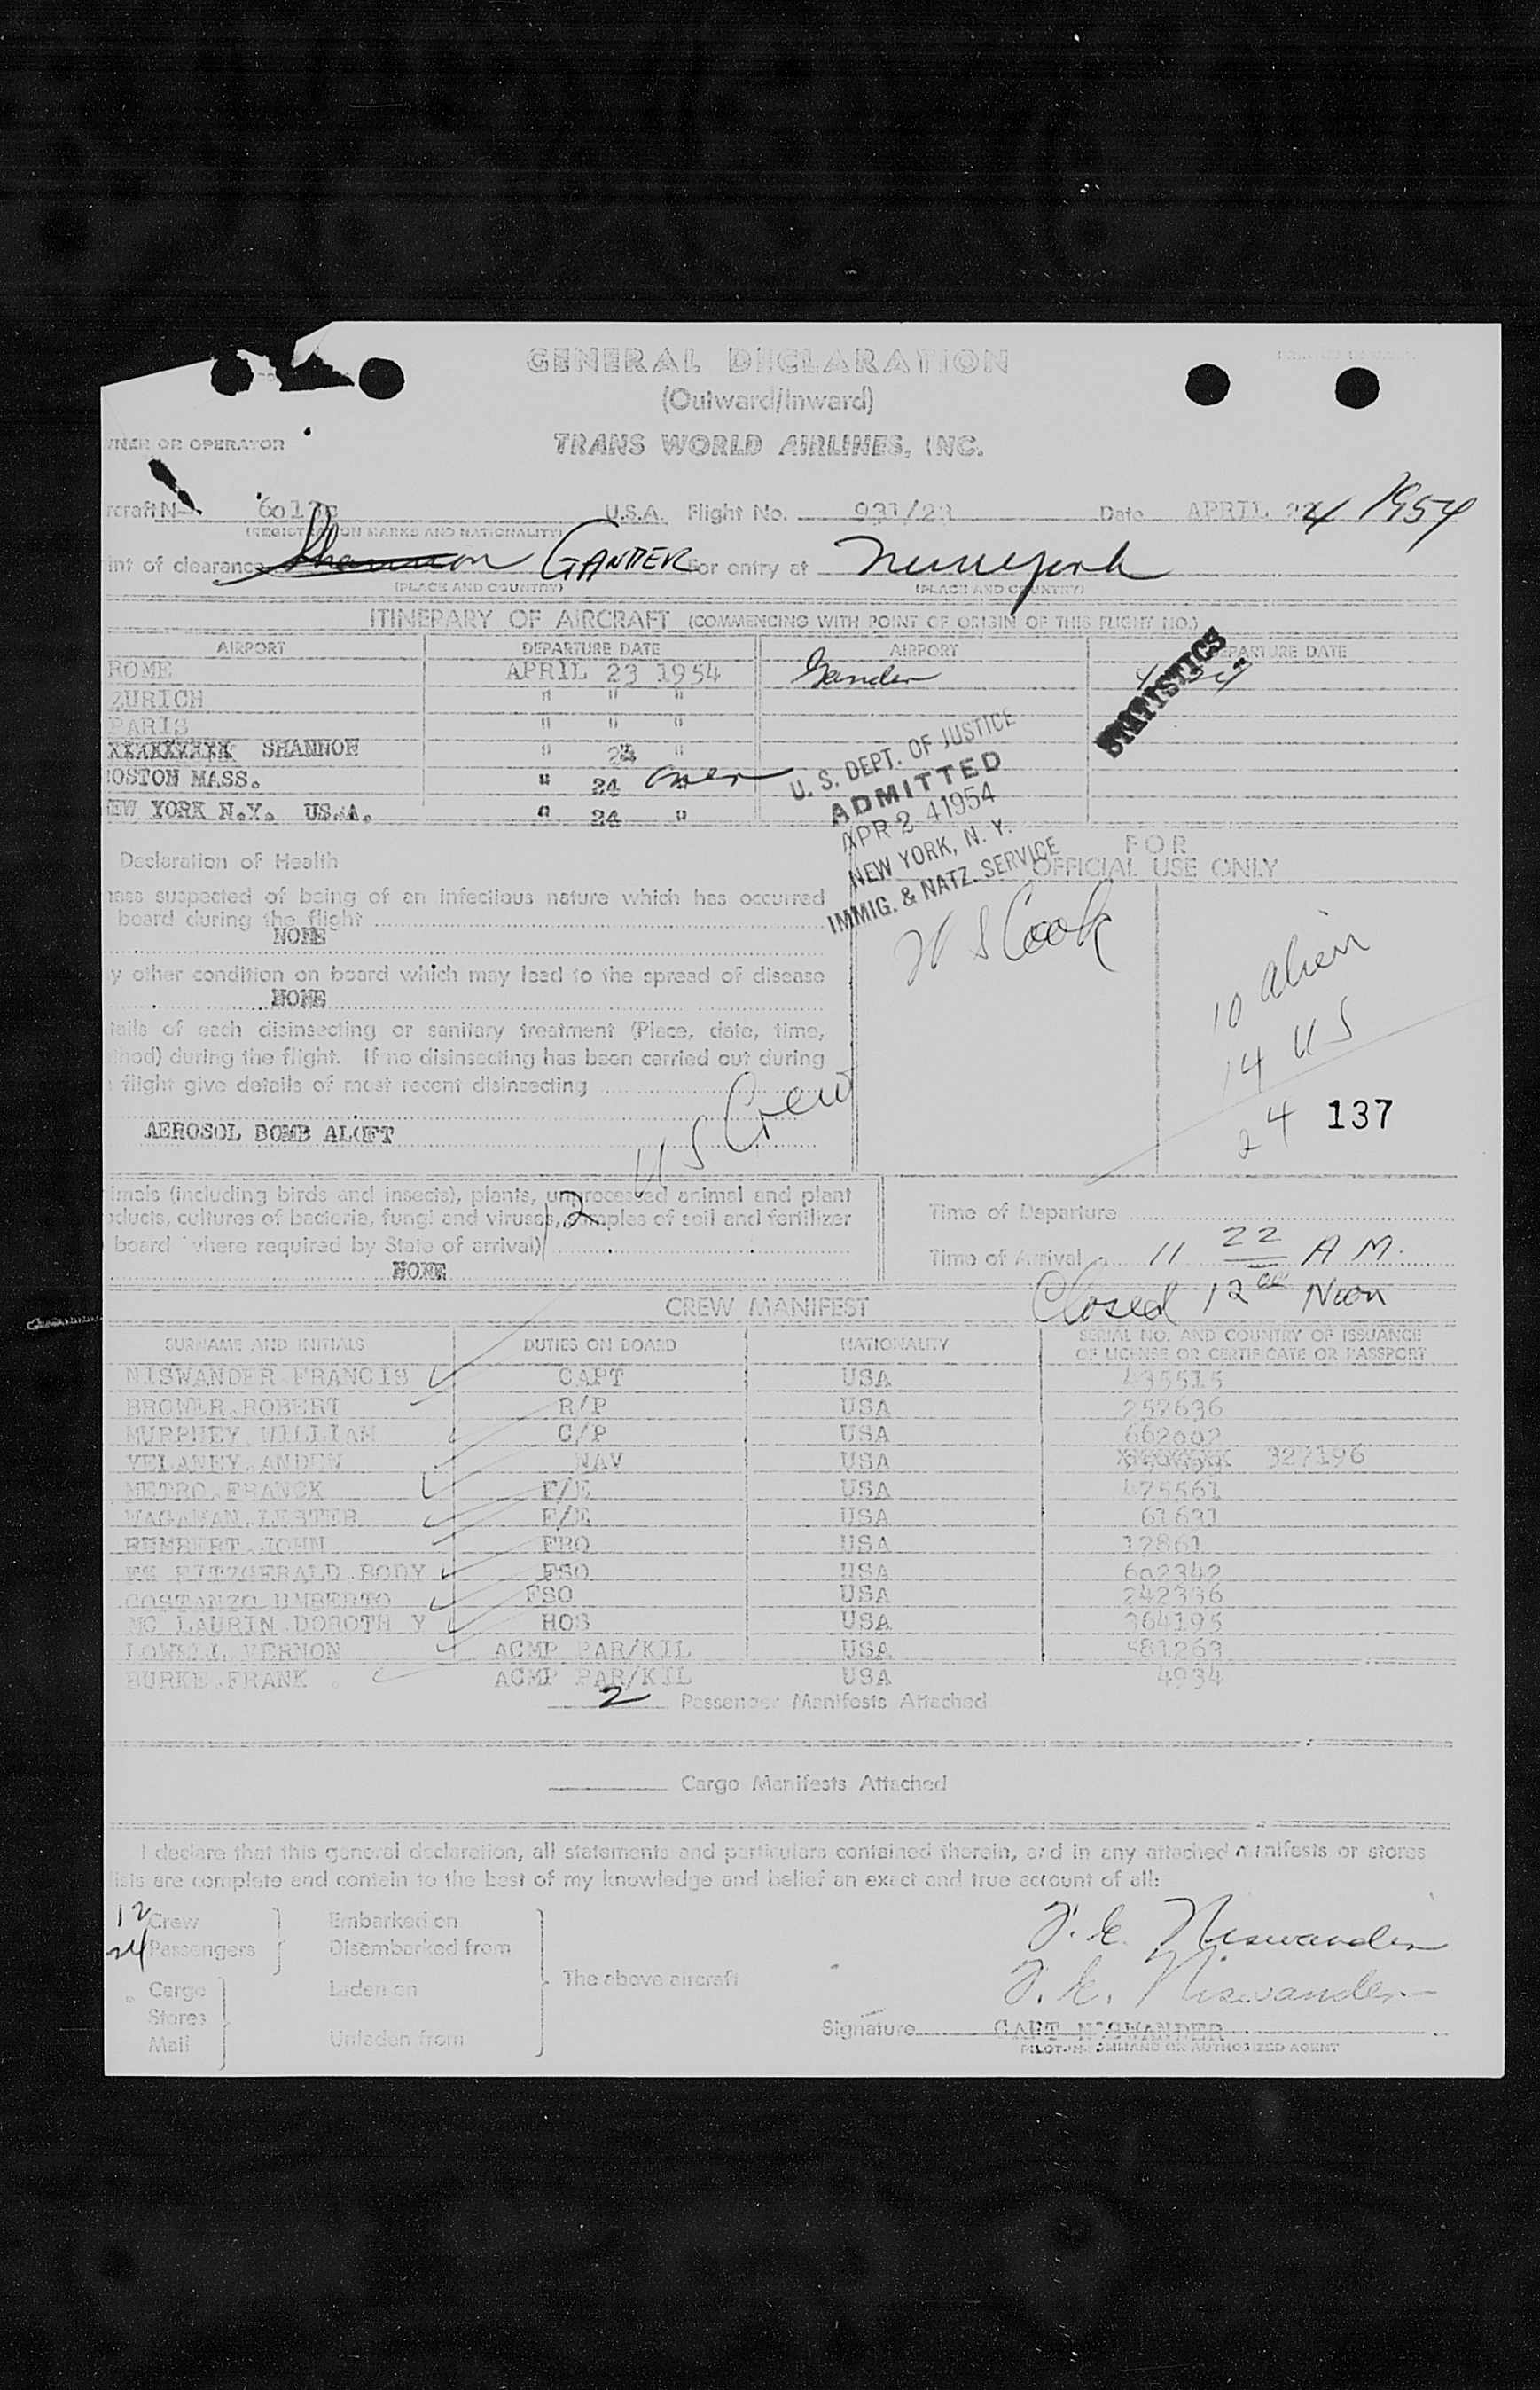 GENERAL DECLARATION
(Outward/Inward)
TRANS WORLD AIRLINES, INC.
WNER OR OPERATOR
rcraft N- U.S.A. Flight No. 931/23 Date APRIL 24 1954
(REGISTRATION MARKS AND NATIONALITY)
int of clearance Shannon GANDER For entry at New york
(PLACE AND COUNTRY) (PLACE AND COUNTRY)
ITINERARY OF AIRCRAFT (COMMENCING WITH POINT OF ORIGIN OF THIS FLIGHT NO.)
AIRPORT DEPARTURE DATE AIRPORT DEPARTURE DATE
ROME APRIL 23 1954 Gander
ZURICH " " "
PARIS " " "
SHANNON " 24 "
OSTON MASS. " 24 " over
EW YORK N.Y. US.A. " 24 "
STATISTICS
U. S. DEPT. OF JUSTICE
ADMITTED
APR 24 1954
NEW YORK, N. Y.
IMMIG. & NATZ. SERVICE
FOR
OFFICIAL USE ONLY
Cook
10 alien
14 US
24 137
Declaration of Health
ness suspected of being of an infectious nature which has occurred
board during the flight
NONE
y other condition on board which may lead to the spread of disease
NONE
tails of each disinsecting or sanitary treatment (Place, date, time,
thod) during the flight. If no disinsecting has been carried out during
flight give details of most recent disinsecting
AEROSOL BOMB ALOFT
12 US Crew
imals (including birds and insects), plants, unprocessed animal and plant
oducts, cultures of bacteria, fungi and viruses, samples of soil and fertilizer
board (where required by State of arrival)
NONE
Time of Departure
Time of Arrival 11 22 A M.
Closed 12 00 Noon
CREW MANIFEST
SURNAME AND INITIALS DUTIES ON BOARD NATIONALITY SERIAL NO. AND COUNTRY OF ISSUANCE
OF LICENSE OR CERTIFICATE OR PASSPORT
NISWANDER FRANCIS CAPT USA 435515
BROMER.ROBERT R/P USA 257636
MURPHEY WILLIAM C/P USA 662002
VELANEY.ANDEN NAV USA 327196
METRO.FRANCK F/E USA 475561
WAGAMAN.LESTER F/E USA 61631
REMBERT.JOHN FRO USA 12861
FITZGERALD.BODY FSO USA 602342
COSTANZO UMBERTO FSO USA 242336
MC LAURIN DOROTH Y HOS USA 364195
LOWELL VERNON ACMP PAR/KIL USA 581263
BURKE.FRANK ACMP PAR/KIL USA 4934
2 Passenger Manifests Attached
Cargo Manifests Attached
I declare that this general declaration, all statements and particulars contained therein, and in any attached manifests or stores
lists are complete and contain to the best of my knowledge and belief an exact and true account of all:
12 Crew Embarked on
24 Passengers Disembarked from
Cargo Laden on The above aircraft
Stores
Mail Unladen from
F. E. Niswander
F. E. Niswander
Signature CAPT NISWANDER
PILOT-IN-COMMAND OR AUTHORIZED AGENT